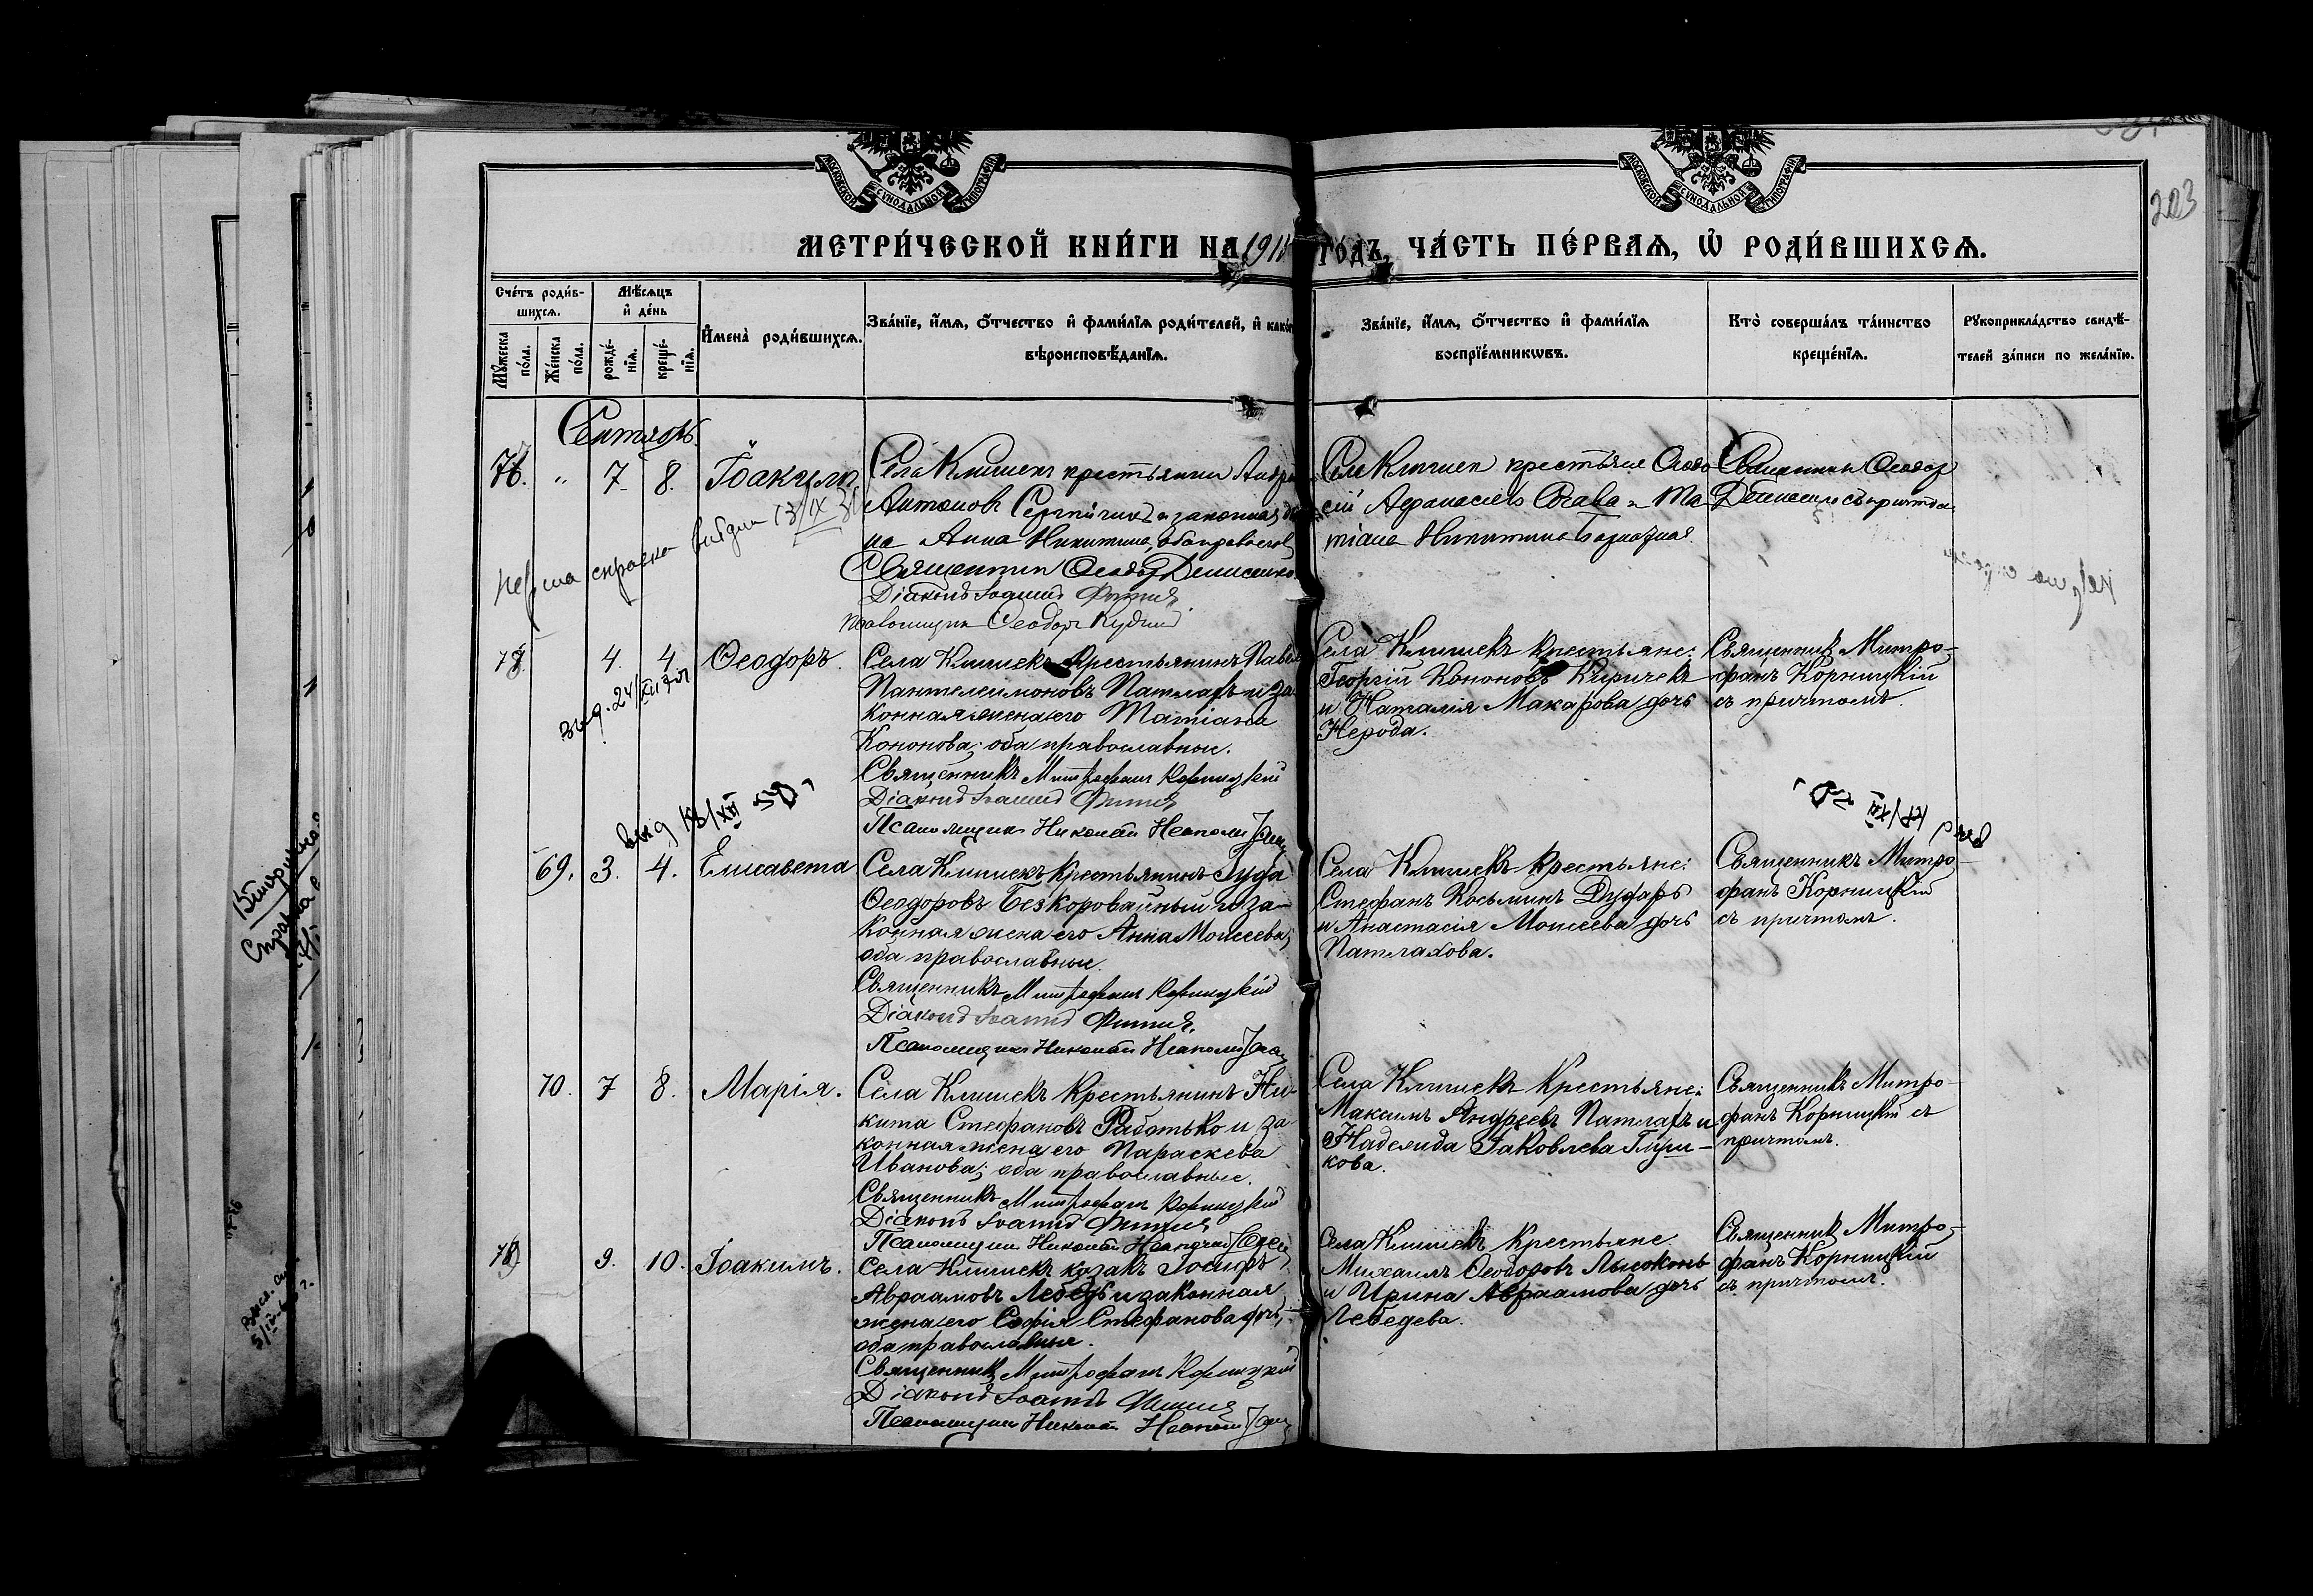 МОСКОВСКОЙ СѴНОДАЛЬНОЙ ТИПОГРАФІИ
МОСКОВСКОЙ СѴНОДАЛЬНОЙ ТИПОГРАФІИ
203
МЕТРИ́ЧЕСКОЙ КНИ́ГИ НА 191 ГО́ДЪ, ЧА́СТЬ ПЕ́РВАѦ, Ѡ҆ РОДИ́ВШИХСѦ.
Сче́тъ роди́в-
шихсѧ.
Мꙋ́жеска по́ла.
Же́нска по́ла.
Мѣ́сѧцъ
и҆ де́нь
рожде́-
нїѧ.
креще́-
нїѧ.
И҆мена̀ роди́вшихсѧ.
Зва́нїе, и҆́мѧ, ѻ҆́тчество и҆ фами́лїѧ роди́телей, и҆ како́гѡ
вѣроисповѣ́данїѧ.
Зва́нїе, и҆́мѧ, ѻ҆́тчество и҆ фами́лїѧ
воспрїе́мникѡвъ.
Кто̀ соверша́лъ та́инство
креще́нїѧ.
Рꙋкоприкла́дство свидѣ́-
телей за́писи по жела́нїю.
Сентябрь.
76. " 7. 8. Іоакимъ
Села Клишекъ крестьянинъ Андрей
Антоновъ и законная
на Анна Никитина, оба православ
Священникъ Ѳеодоръ Денисенко
Діаконъ Іоаннъ
Псаломщикъ Ѳеодоръ
Села Клишекъ крестьяне
сій Аѳанасіевъ и Та
тіана Никитина
Священникъ Ѳеодоръ
Денисенко съ причтом
перша справка видана 13/IX 31
4. 4. Ѳеодоръ.
Села Клишекъ Крестьянинъ Павелъ
Пантелеимоновъ Патлахъ и за-
конная жена его Татіана
Кононова; оба православные.
Священникъ Митрофанъ Корницкій
Діаконъ Іоаннъ
Псаломщикъ Николай
Села Клишекъ Крестьяне:
Георгій Кононовъ Киричекъ
и Наталія Макарова дочь
Нерода.
Священникъ Митро-
фанъ Корницкій
съ причтомъ.
выд. 24/XII
выд 18/XII 50 г
69. 3. 4. Елисавета
Села Клишекъ Крестьянинъ Іуда
Ѳеодоровъ Безкоровайный и за-
конная жена его Анна Моисеева;
оба православные.
Священникъ Митрофанъ Корницкій
Діаконъ Іоаннъ
Псаломщикъ Николай
Села Клишекъ Крестьяне:
Стефанъ Косьминъ Дударь
и Анастасія Моисеева дочь
Патлахова.
Священникъ Митро-
фанъ Корницкій
съ причтомъ.
70. 7 8. Марія.
Села Клишекъ Крестьянинъ Ни-
кита Стефановъ Работько и за-
конная жена его Параскева
Иванова; оба православные.
Священникъ Митрофанъ Корницкій
Діаконъ Іоаннъ
Псаломщикъ Николай
Села Клишекъ Крестьяне:
Максимъ Андреевъ Патлахъ и
Надежда Іаковлева Глуш-
кова.
Священникъ Митро-
фанъ Корницкій съ
причтомъ.
9. 10. Іоакимъ.
Села Клишекъ казакъ Іосифъ
Авраамовъ Лебедь и законная
жена его Софія Стефанова дочь;
оба православные.
Священникъ Митрофанъ Корницкій
Діаконъ Іоаннъ
Псаломщикъ Николай
Села Клишекъ Крестьяне.
Михаилъ Ѳеодоровъ Лысоконь
и Ирина Авраамова дочь
Лебедева.
Священникъ Митро-
фанъ Корницкій
съ причтомъ.